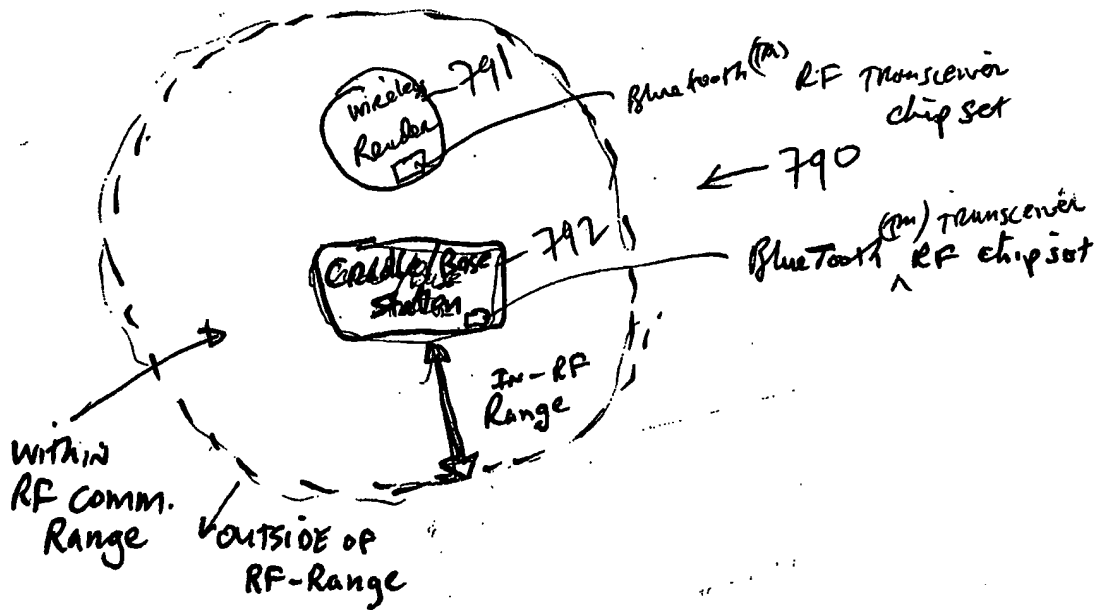 Wireless
Reader
791
BlueTooth (TM) RF Transceiver
chip set
790
Cradle/Base
Station
792
BlueTooth (TM) Transceiver
^ RF chip set
IN-RF
Range
WITHIN
RF COMM.
Range
OUTSIDE OF
RF-Range